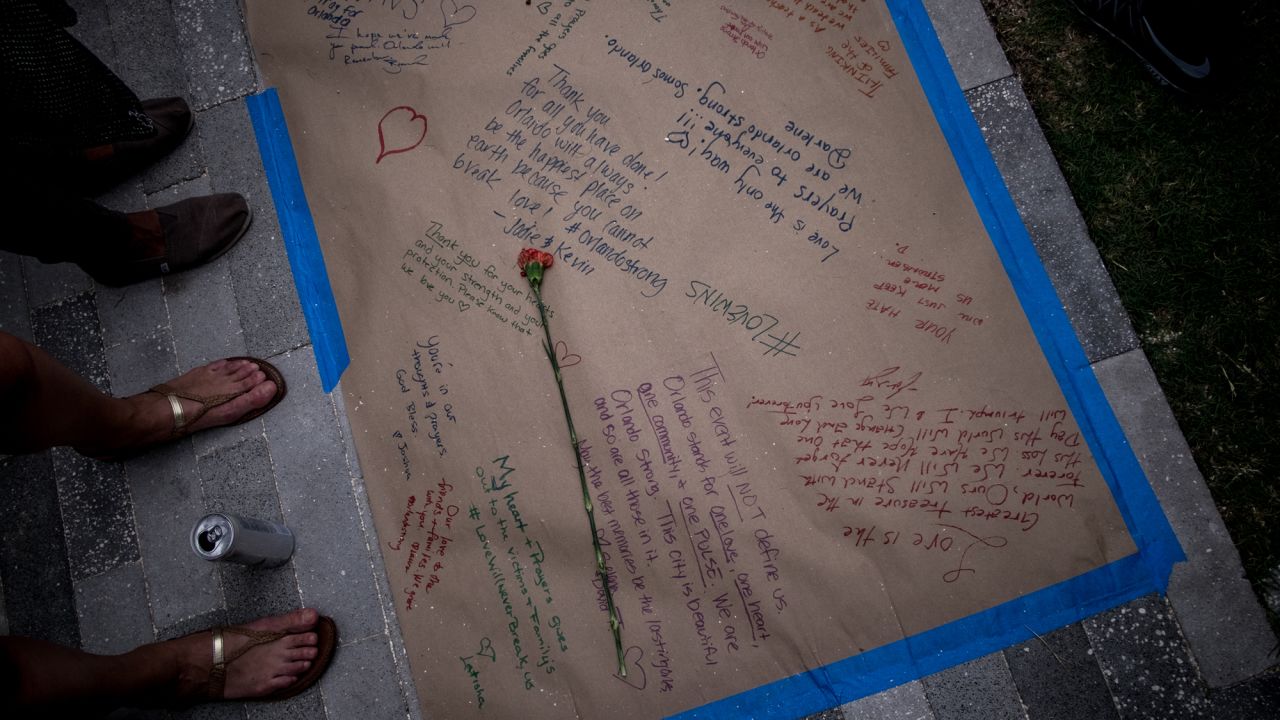 for
Orlando
I hope we've made
you proud Orlando will
THINKING
OF THE
FAMILIES
Thank you
for all you have done!
Orlando will always
be the happiest place on
earth because you cannot
break love! #Orlandostrong
- Jodie & Kevin
Love is the only way!
Prayers to everyone !!!
We are orlando strong. Somos orlando.
Darlene
Thank you for your hearts
and your strength and your
protection. Please know that
we love you
#LOVEWINS
YOUR HATE
WILL JUST KEEP
US MADE
STRONGER
D.
You're in our
thoughts & prayers
God Bless.
Joshua
This event will NOT define us.
Orlando stands for one love, one heart,
one community & one PULSE. We are
Orlando Strong. This city is beautiful
and so are all those in it.
May the best memories be the lasting ones
Love is the
Greatest Treasure in the
World, Ours Will Stand with
Forever. We Will Never Forget
this loss. We Have Hope that One
Day this World Will Change and Love
Will triumph. I & We Love You forever!
Our love to the
friends + families. We
with your
My heart + Prayers goes
out to the victims + Family's
#LoveWillNeverBreak, us
Letroha